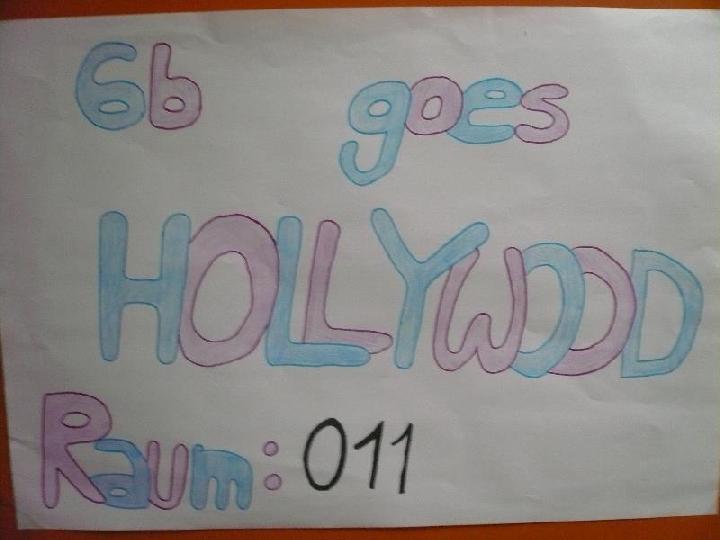 6b goes
HOLLYWOOD
Raum: 011